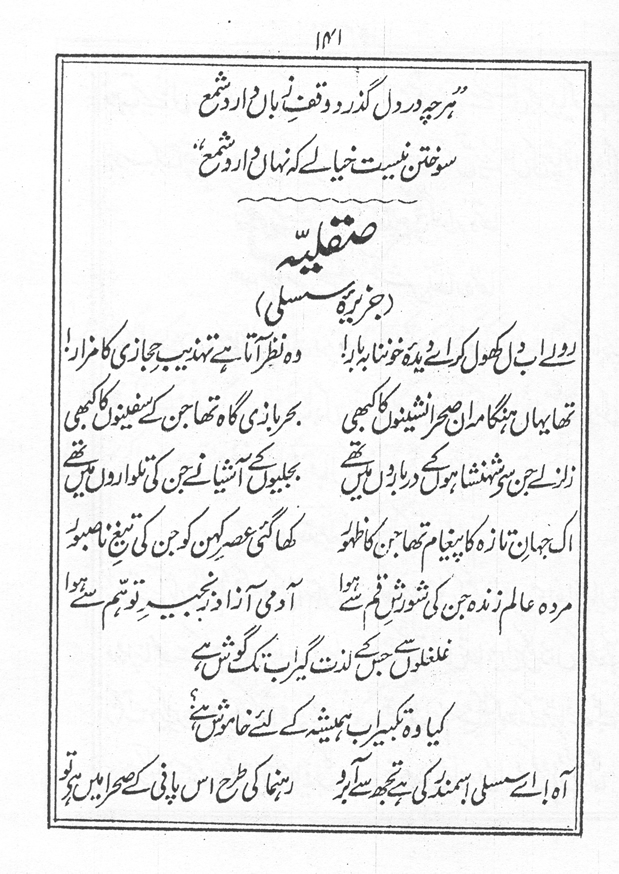 ۱۴۱
"ہرچہ در دل گذرد وقفِ زباں دارد شمع
سوختن نیست خیالے کہ نہاں دارد شمع"
صقلیّہ
(جزیرۂ سسلی)
رولے اب دل کھول کر اے دیدۂ خوننابہ بار! وہ نظر آتا ہے تہذیبِ حجازی کا مزار!
تھا یہاں ہنگامہ ان صحرا نشینوں کا کبھی بحر بازی گاہ تھا جن کے سفینوں کا کبھی
زلزلے جن سے شہنشاہوں کے درباروں میں تھے بجلیوں کے آشیانے جن کی تلواروں میں تھے
اک جہانِ تازہ کا پیغام تھا جن کا ظہور کھا گئی عصرِ کہن کو جن کی تیغِ ناصبور
مردہ عالم زندہ جن کی شورشِ قم سے ہوا آدمی آزاد زنجیرِ توہّم سے ہوا
غلغلوں سے جس کے لذت گیر اب تک گوش ہے
کیا وہ تکبیر اب ہمیشہ کے لئے خاموش ہے؟
آہ اے سسلی! سمندر کی ہے تجھ سے آبرو رہنما کی طرح اس پانی کے صحرا میں ہے تو